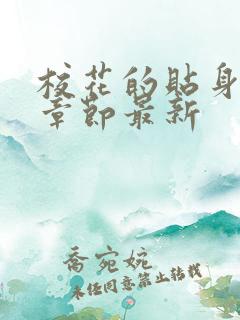 校花的贴身
章节最新
乔宛婉
未经同意禁止转载